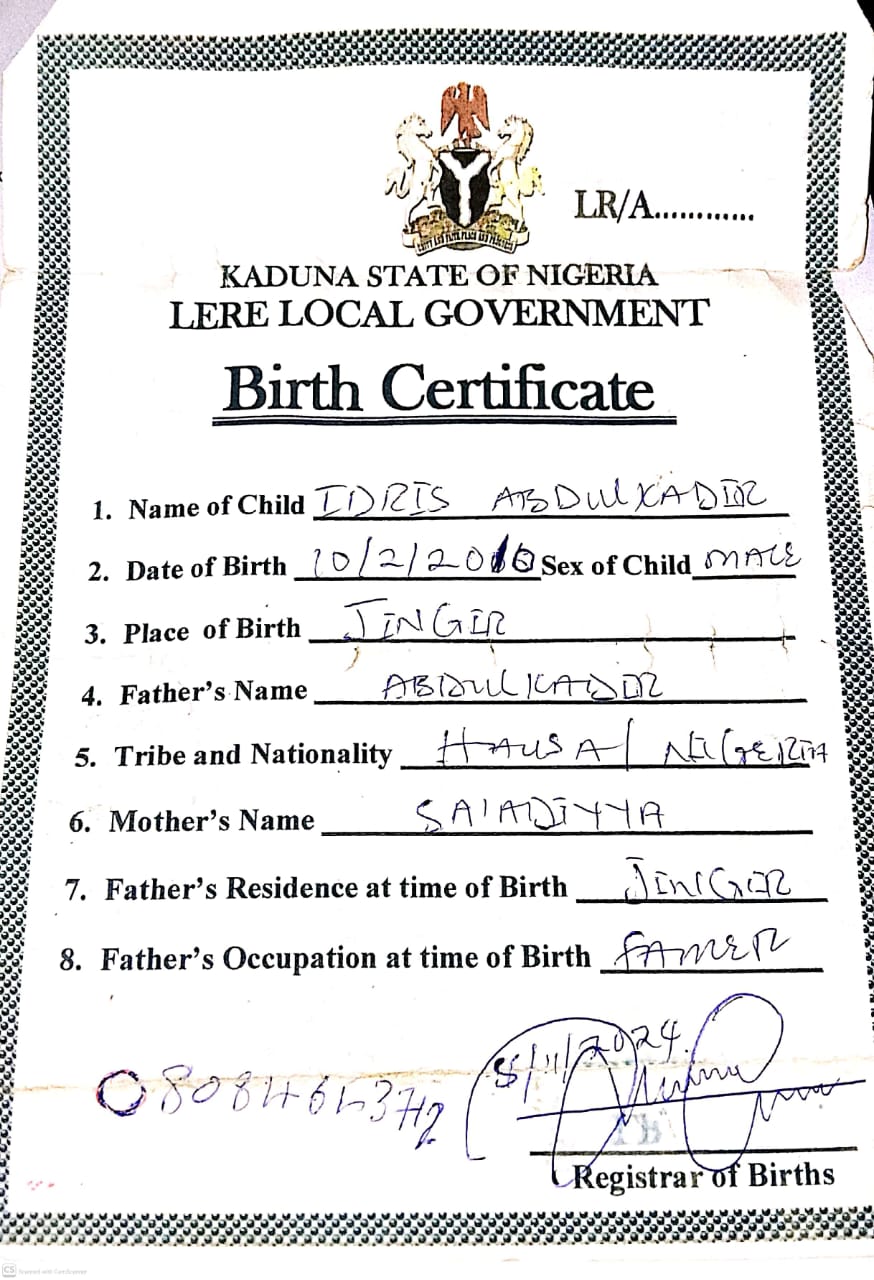 LR/A............
KADUNA STATE OF NIGERIA
LERE LOCAL GOVERNMENT
Birth Certificate
1. Name of Child IDRIS ABDULKADIR
2. Date of Birth 10/2/20 Sex of Child MALE
3. Place of Birth JINGIR
4. Father's Name ABDULKADIR
5. Tribe and Nationality HAUSA/ NIGERIA
6. Mother's Name SA'ADIYYA
7. Father's Residence at time of Birth JINGIR
8. Father's Occupation at time of Birth FAMER
/11/2024
Registrar of Births
CS Scanned with CamScanner